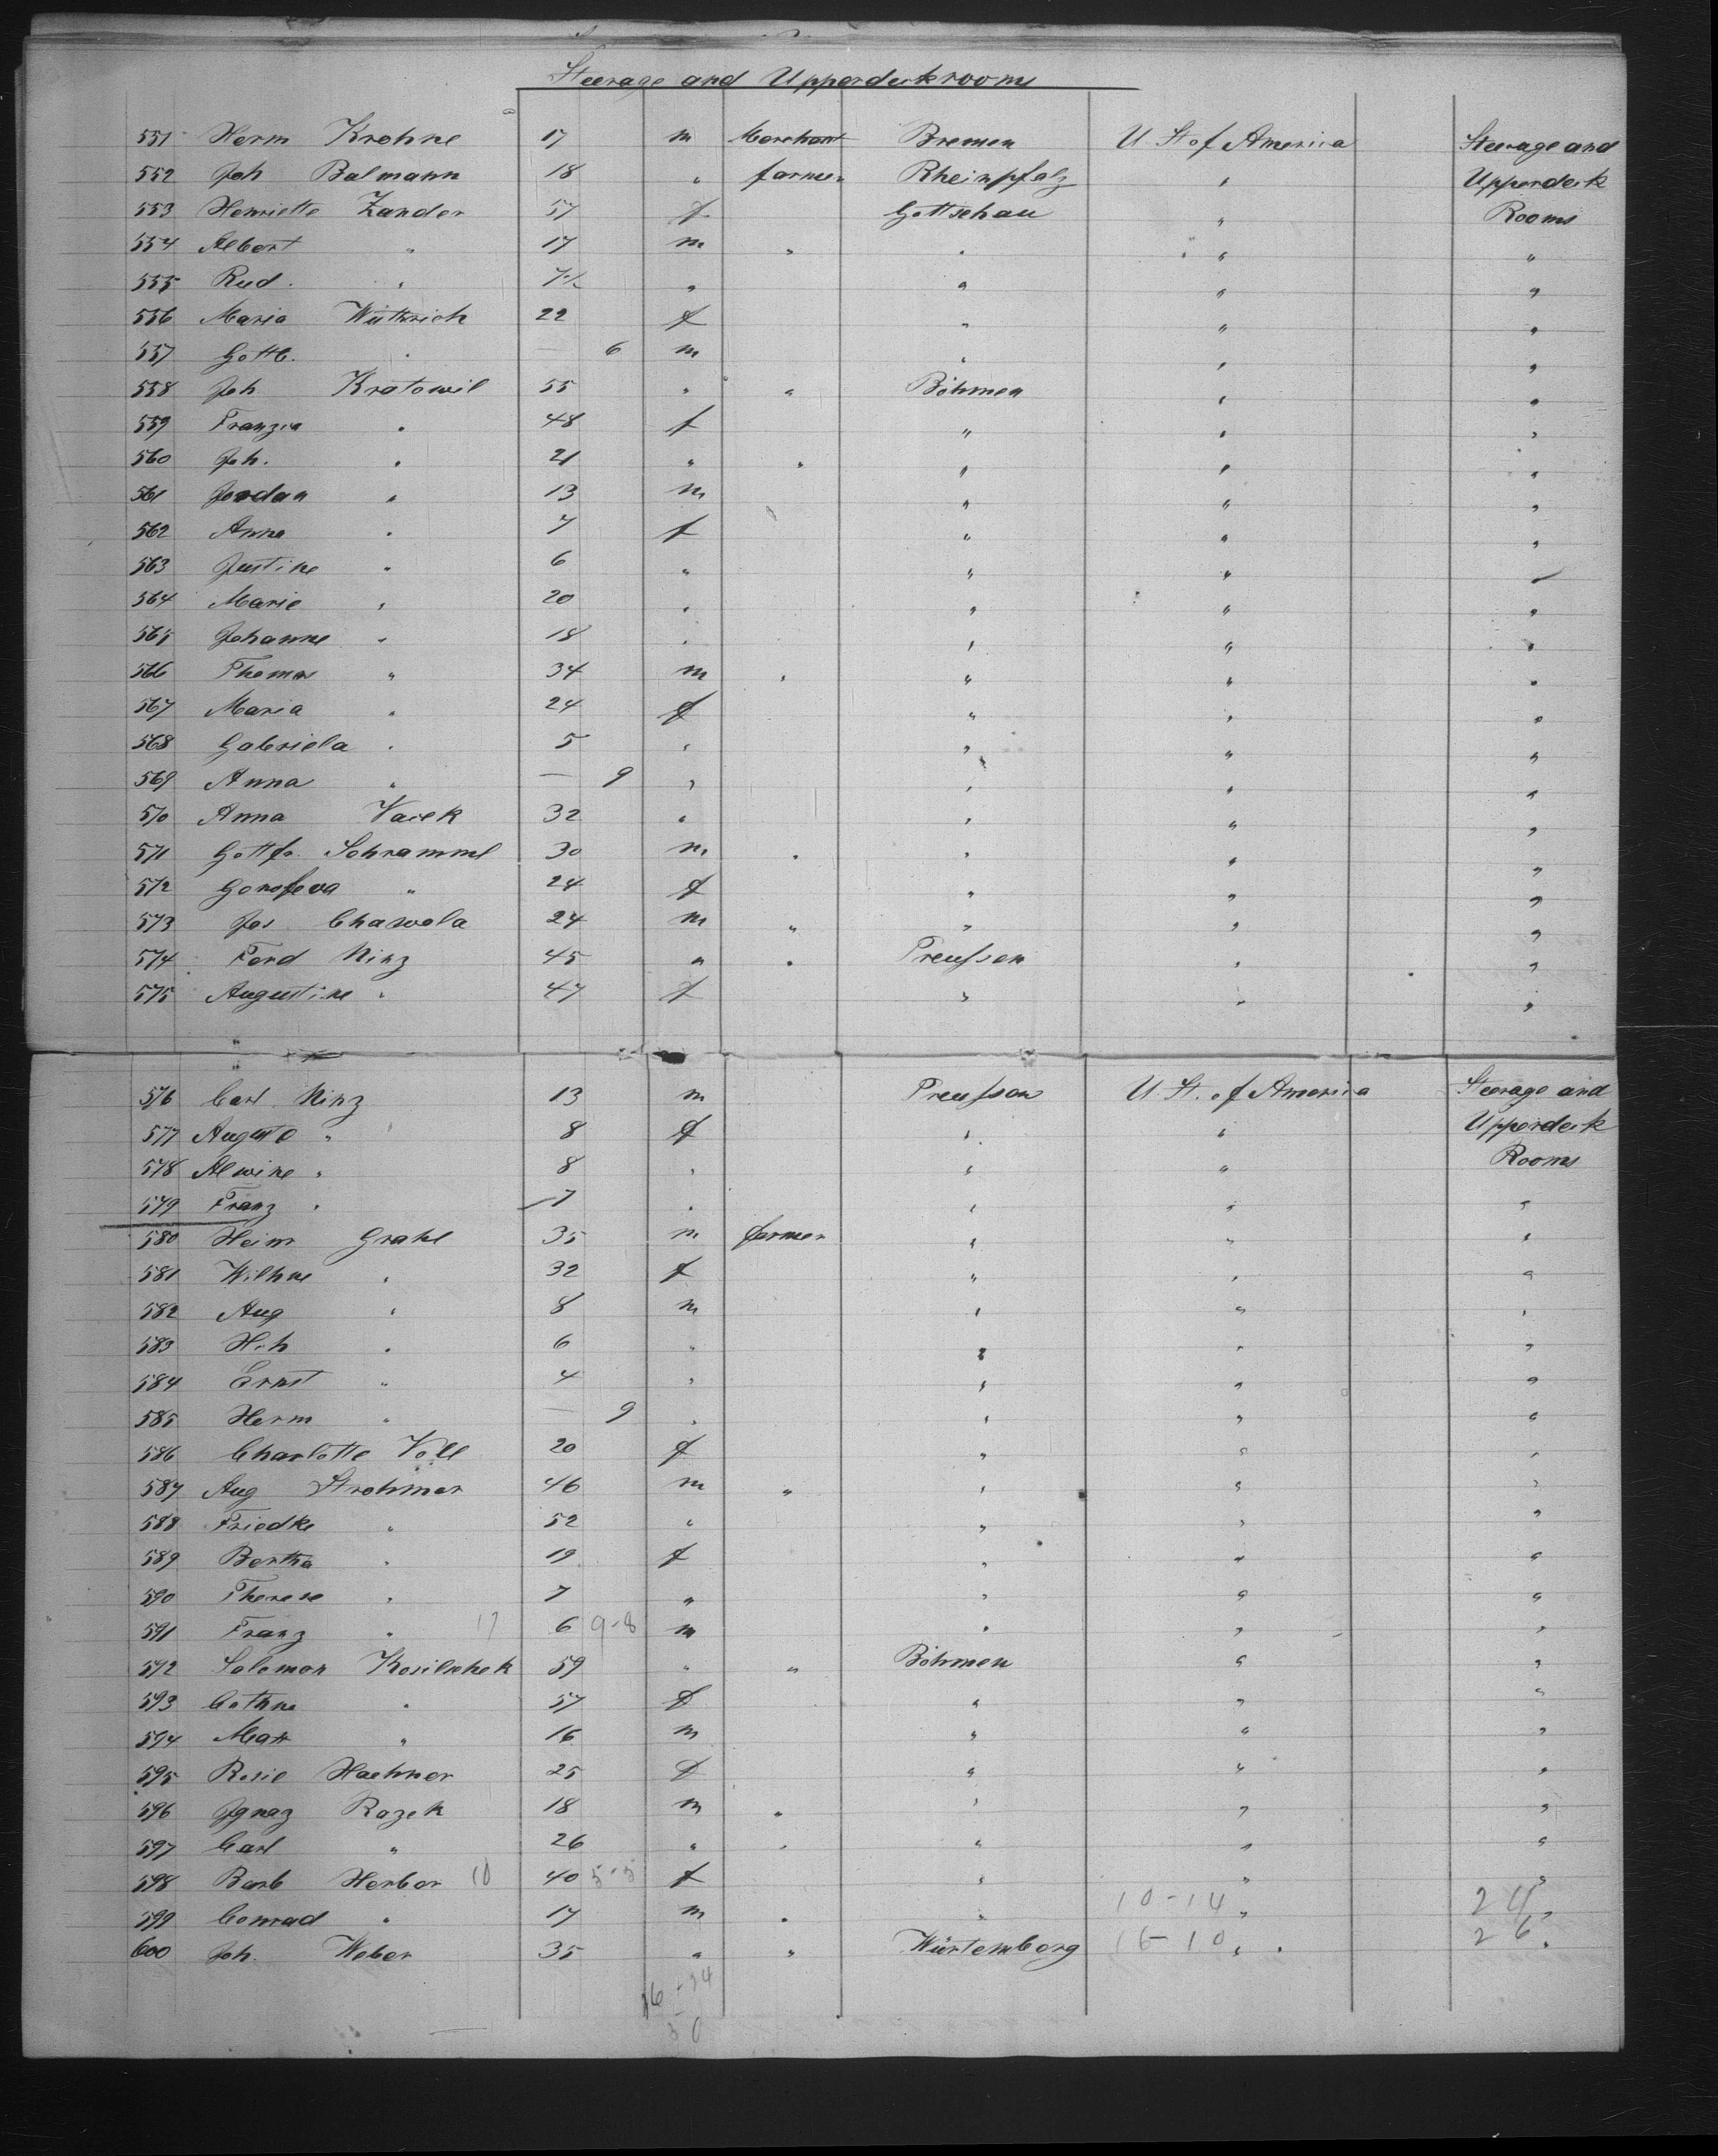 Steerage and Upperdeckrooms
551 Herm Krohne 17 m Merchant Bremen U St of America Steerage and
552 Joh Balmann 18 " farmer Rheinpfalz " Upperdeck
553 Henriette Zander 57 f Gottschau " Rooms
554 Albert " 17 m " " " "
555 Rud. " " " " "
556 Maria Wüthrich 22 f " " "
557 Gottl. " — 6 m " " "
558 Joh Kratowil 55 " " Böhmen " "
559 Franzia " 48 f " " "
560 Joh. " 21 " " " " "
561 Jordan " 13 m " " "
562 Anna " 7 f " " "
563 Justine " 6 " " " "
564 Marie " 20 " " " "
565 Johanne " 18 " " " "
566 Thomas " 34 m " " " "
567 Maria " 24 f " " "
568 Gabriela " 5 " " " "
569 Anna " — 9 " " " "
570 Anna Vacek 32 " " " "
571 Gottfr. Schramml 30 m " " " "
572 Genofeva " 24 f " " "
573 Jos Chawola 24 m " " " "
574 Ferd Ninz 45 " " Preussen " "
575 Augustine " 47 f " " "
576 Carl Ninz 13 m Preussen U. St. of America Steerage and
577 Auguste " 8 f " " Upperdeck
578 Alwine " 8 " " " Rooms
579 Franz " 7 " " " "
580 Heinr Grahl 35 m farmer " " "
581 Wilhne " 32 f " " "
582 Aug " 8 m " " "
583 Hch " 6 " " " "
584 Ernst " 4 " " " "
585 Herm " — 9 " " " "
586 Charlotte Voll 20 f " " "
587 Aug Strohmer 46 m " " " "
588 Friedke " 52 " " " "
589 Bertha " 19 f " " "
590 Therese " 7 " " " "
591 Franz " 17 6 9-8 m " " "
592 Salomon Kosilschek 59 " " Böhmen " "
593 Cathne " 57 f " " "
594 Matt " 16 m " " "
595 Rosie Haehner 25 f " " "
596 Ignaz Razek 18 m " " " "
597 Carl " 26 " " " " "
598 Barb Herbor 10 40 5-5 f " " "
599 Conrad " 17 m " " 10-14 " 24 "
600 Joh. Weber 35 " " Würtemberg 16-10 " 26 "
16-34